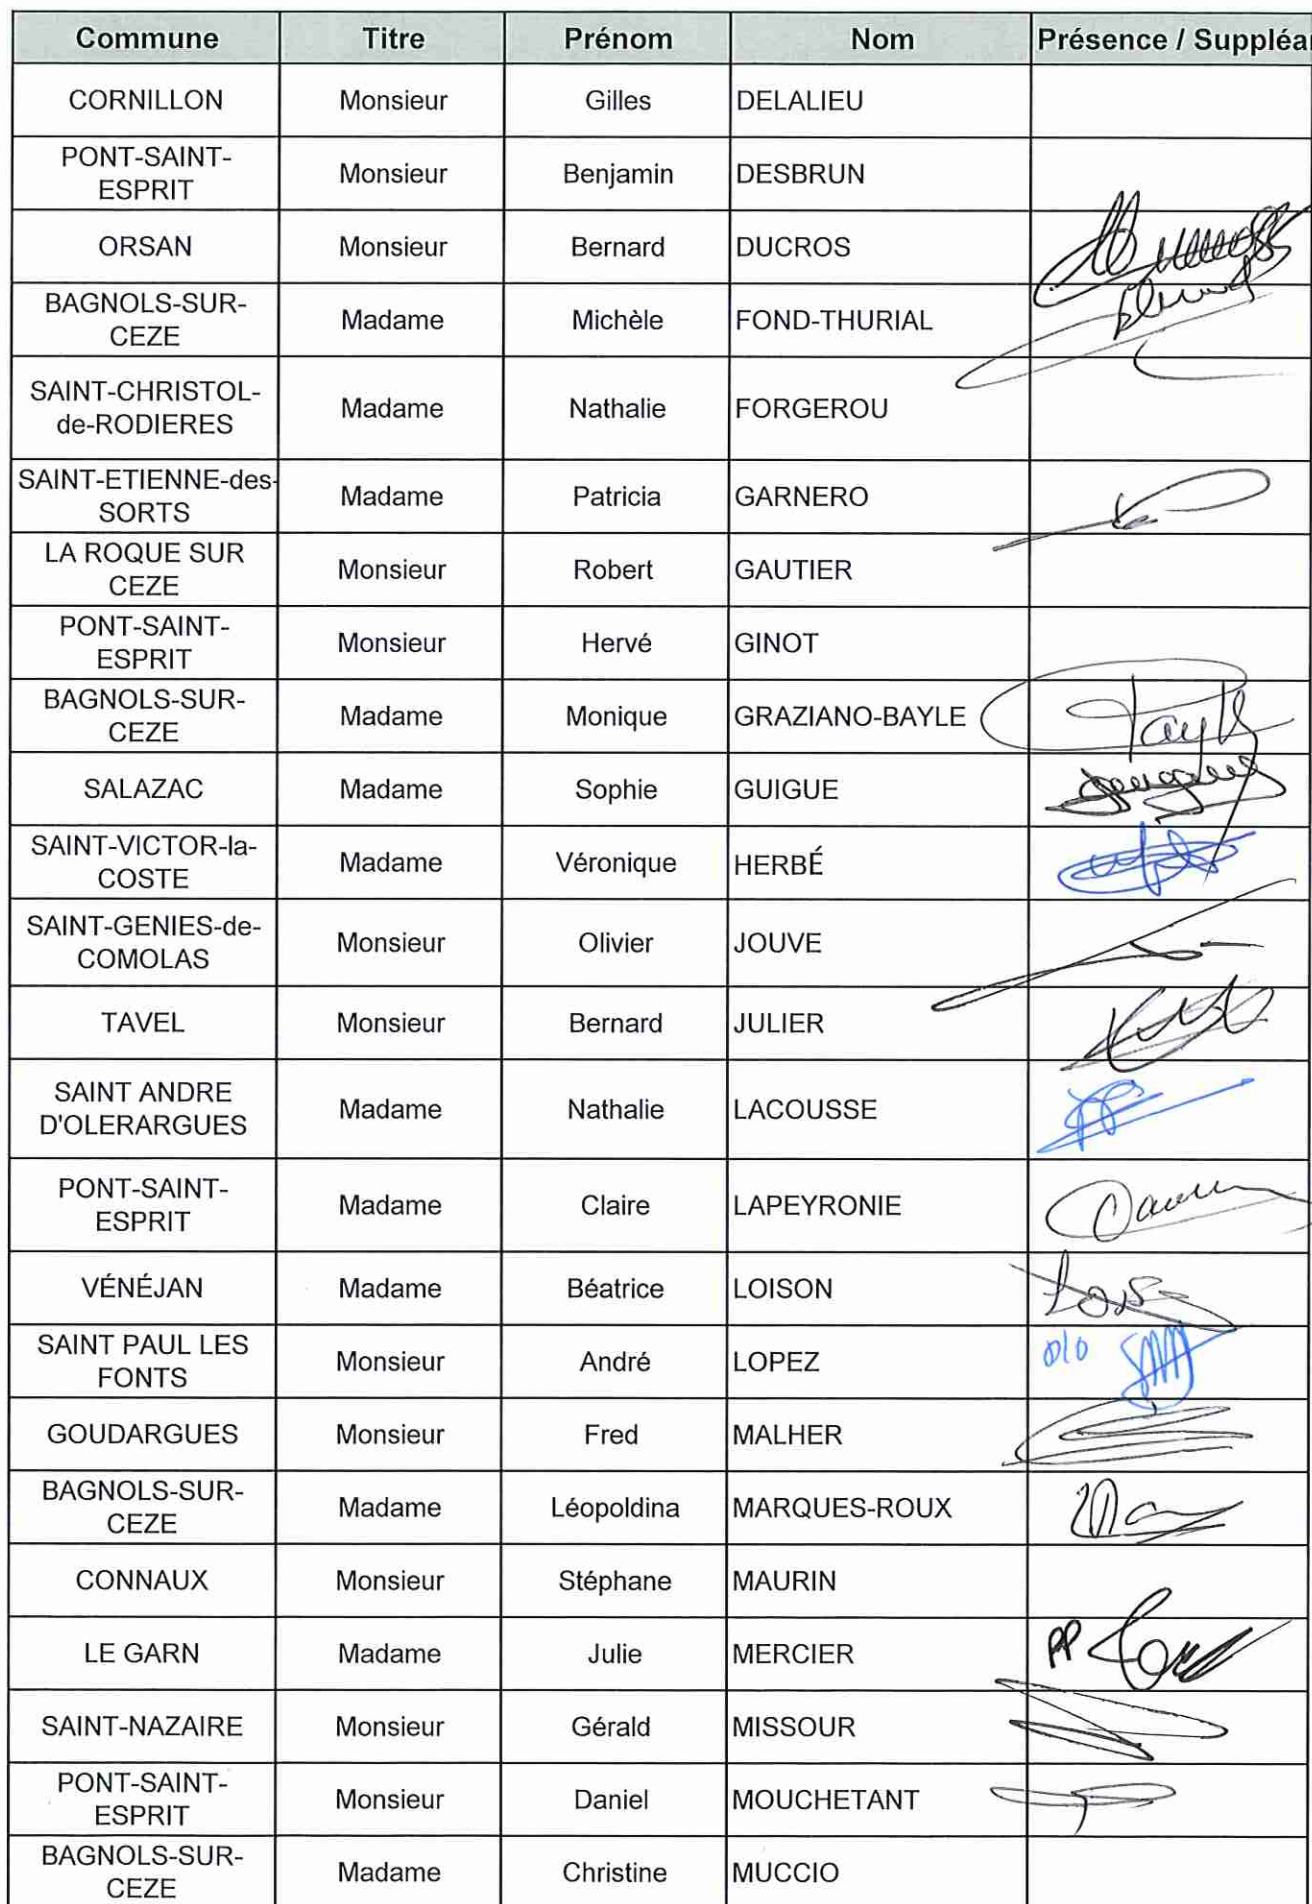 Commune Titre Prénom Nom Présence / Suppléa
CORNILLON Monsieur Gilles DELALIEU
PONT-SAINT-
ESPRIT Monsieur Benjamin DESBRUN
ORSAN Monsieur Bernard DUCROS
BAGNOLS-SUR-
CEZE Madame Michèle FOND-THURIAL
SAINT-CHRISTOL-
de-RODIERES Madame Nathalie FORGEROU
SAINT-ETIENNE-des-
SORTS Madame Patricia GARNERO
LA ROQUE SUR
CEZE Monsieur Robert GAUTIER
PONT-SAINT-
ESPRIT Monsieur Hervé GINOT
BAGNOLS-SUR-
CEZE Madame Monique GRAZIANO-BAYLE
SALAZAC Madame Sophie GUIGUE
SAINT-VICTOR-la-
COSTE Madame Véronique HERBÉ
SAINT-GENIES-de-
COMOLAS Monsieur Olivier JOUVE
TAVEL Monsieur Bernard JULIER
SAINT ANDRE
D'OLERARGUES Madame Nathalie LACOUSSE
PONT-SAINT-
ESPRIT Madame Claire LAPEYRONIE
VÉNÉJAN Madame Béatrice LOISON
SAINT PAUL LES
FONTS Monsieur André LOPEZ
GOUDARGUES Monsieur Fred MALHER
BAGNOLS-SUR-
CEZE Madame Léopoldina MARQUES-ROUX
CONNAUX Monsieur Stéphane MAURIN
LE GARN Madame Julie MERCIER PP
SAINT-NAZAIRE Monsieur Gérald MISSOUR
PONT-SAINT-
ESPRIT Monsieur Daniel MOUCHETANT
BAGNOLS-SUR-
CEZE Madame Christine MUCCIO